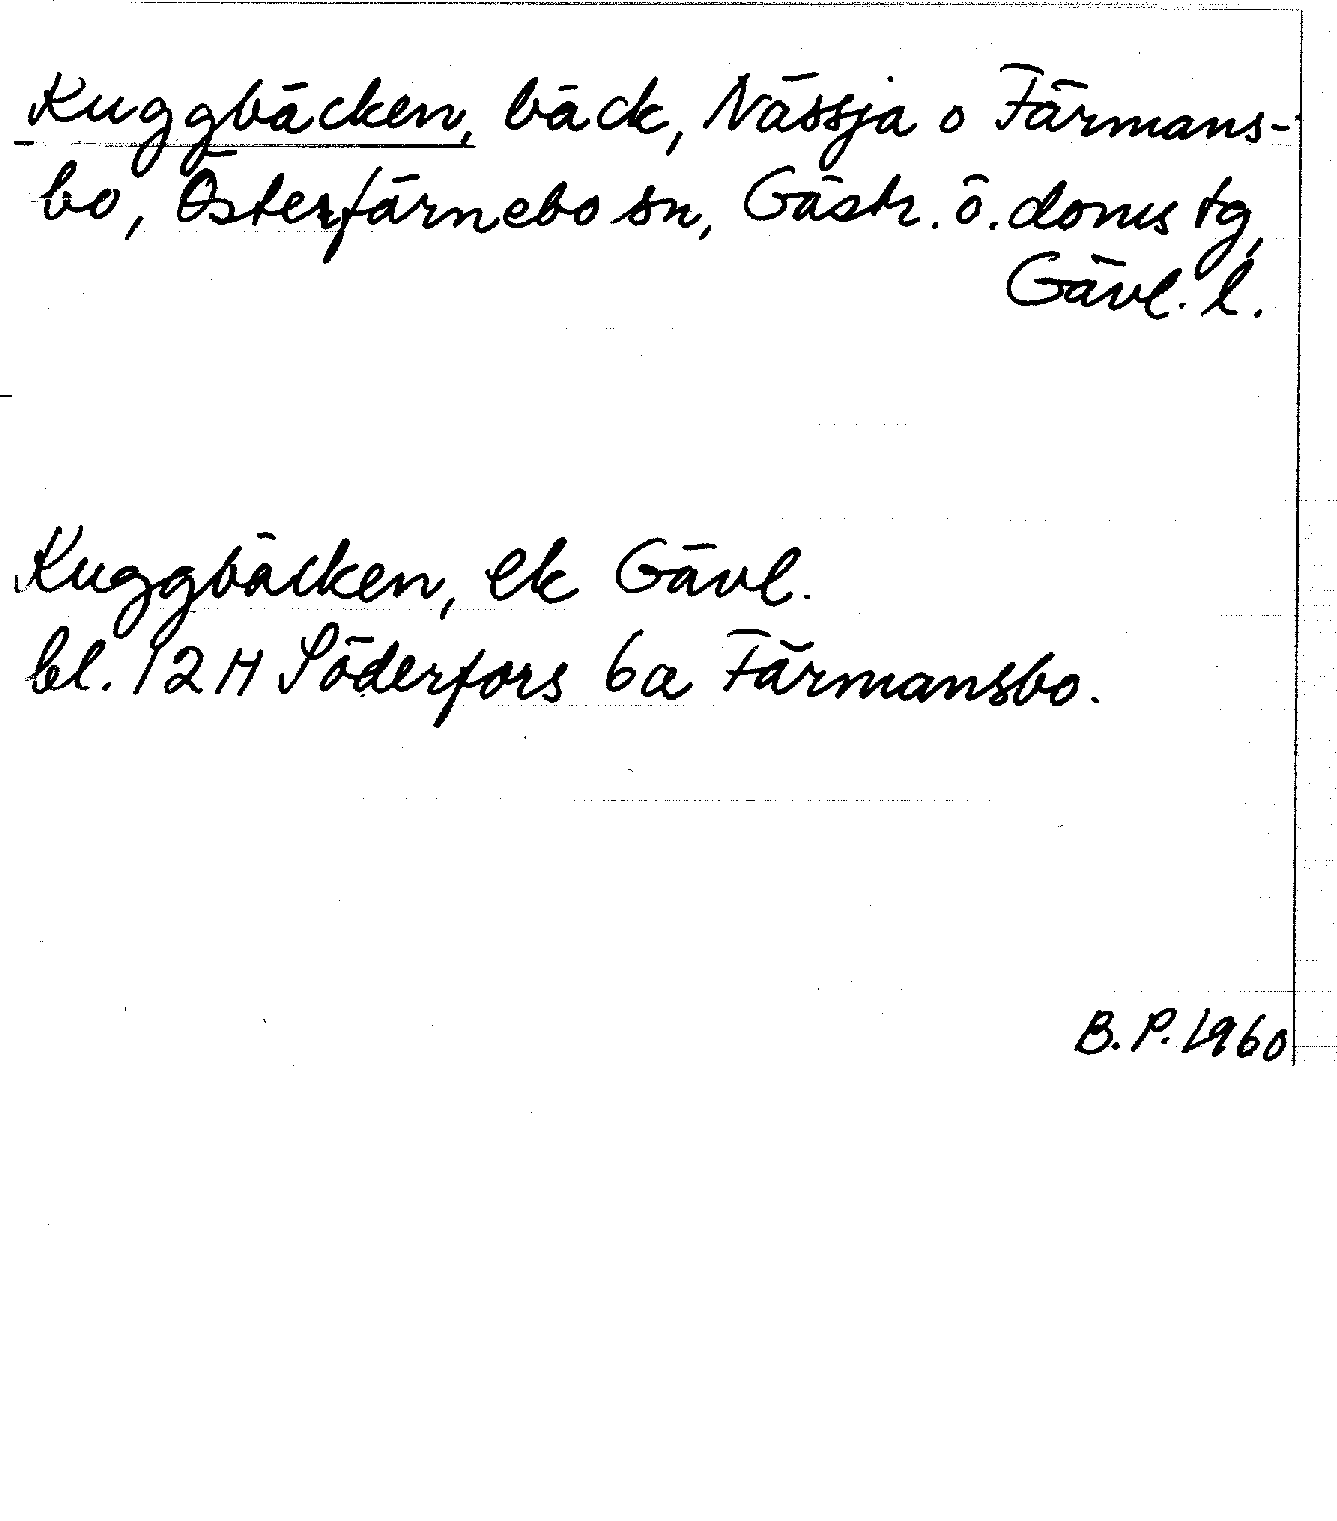 Kuggbäcken, bäck, Nässja o Färmans-
bo, Österfärnebo sn, Gästr. ö. doms tg,
Gävl. l.
Kuggbäcken, ek Gävl.
bl. 12H Söderfors 6a Färmansbo.
B. P. 1960